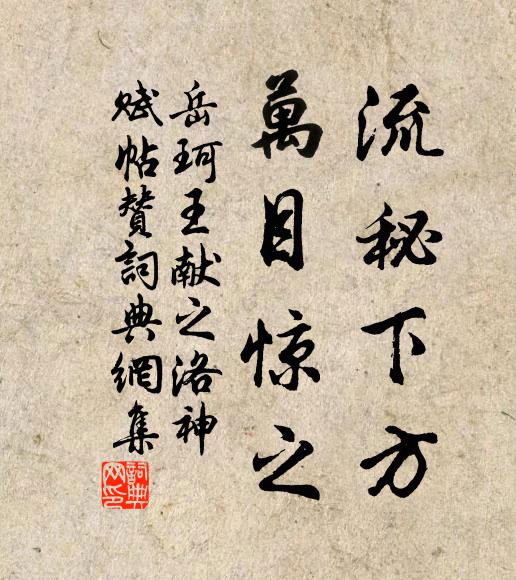 流秘下方
萬目惊之
岳珂王献之洛神
赋帖贊詞典網集
詞典网印